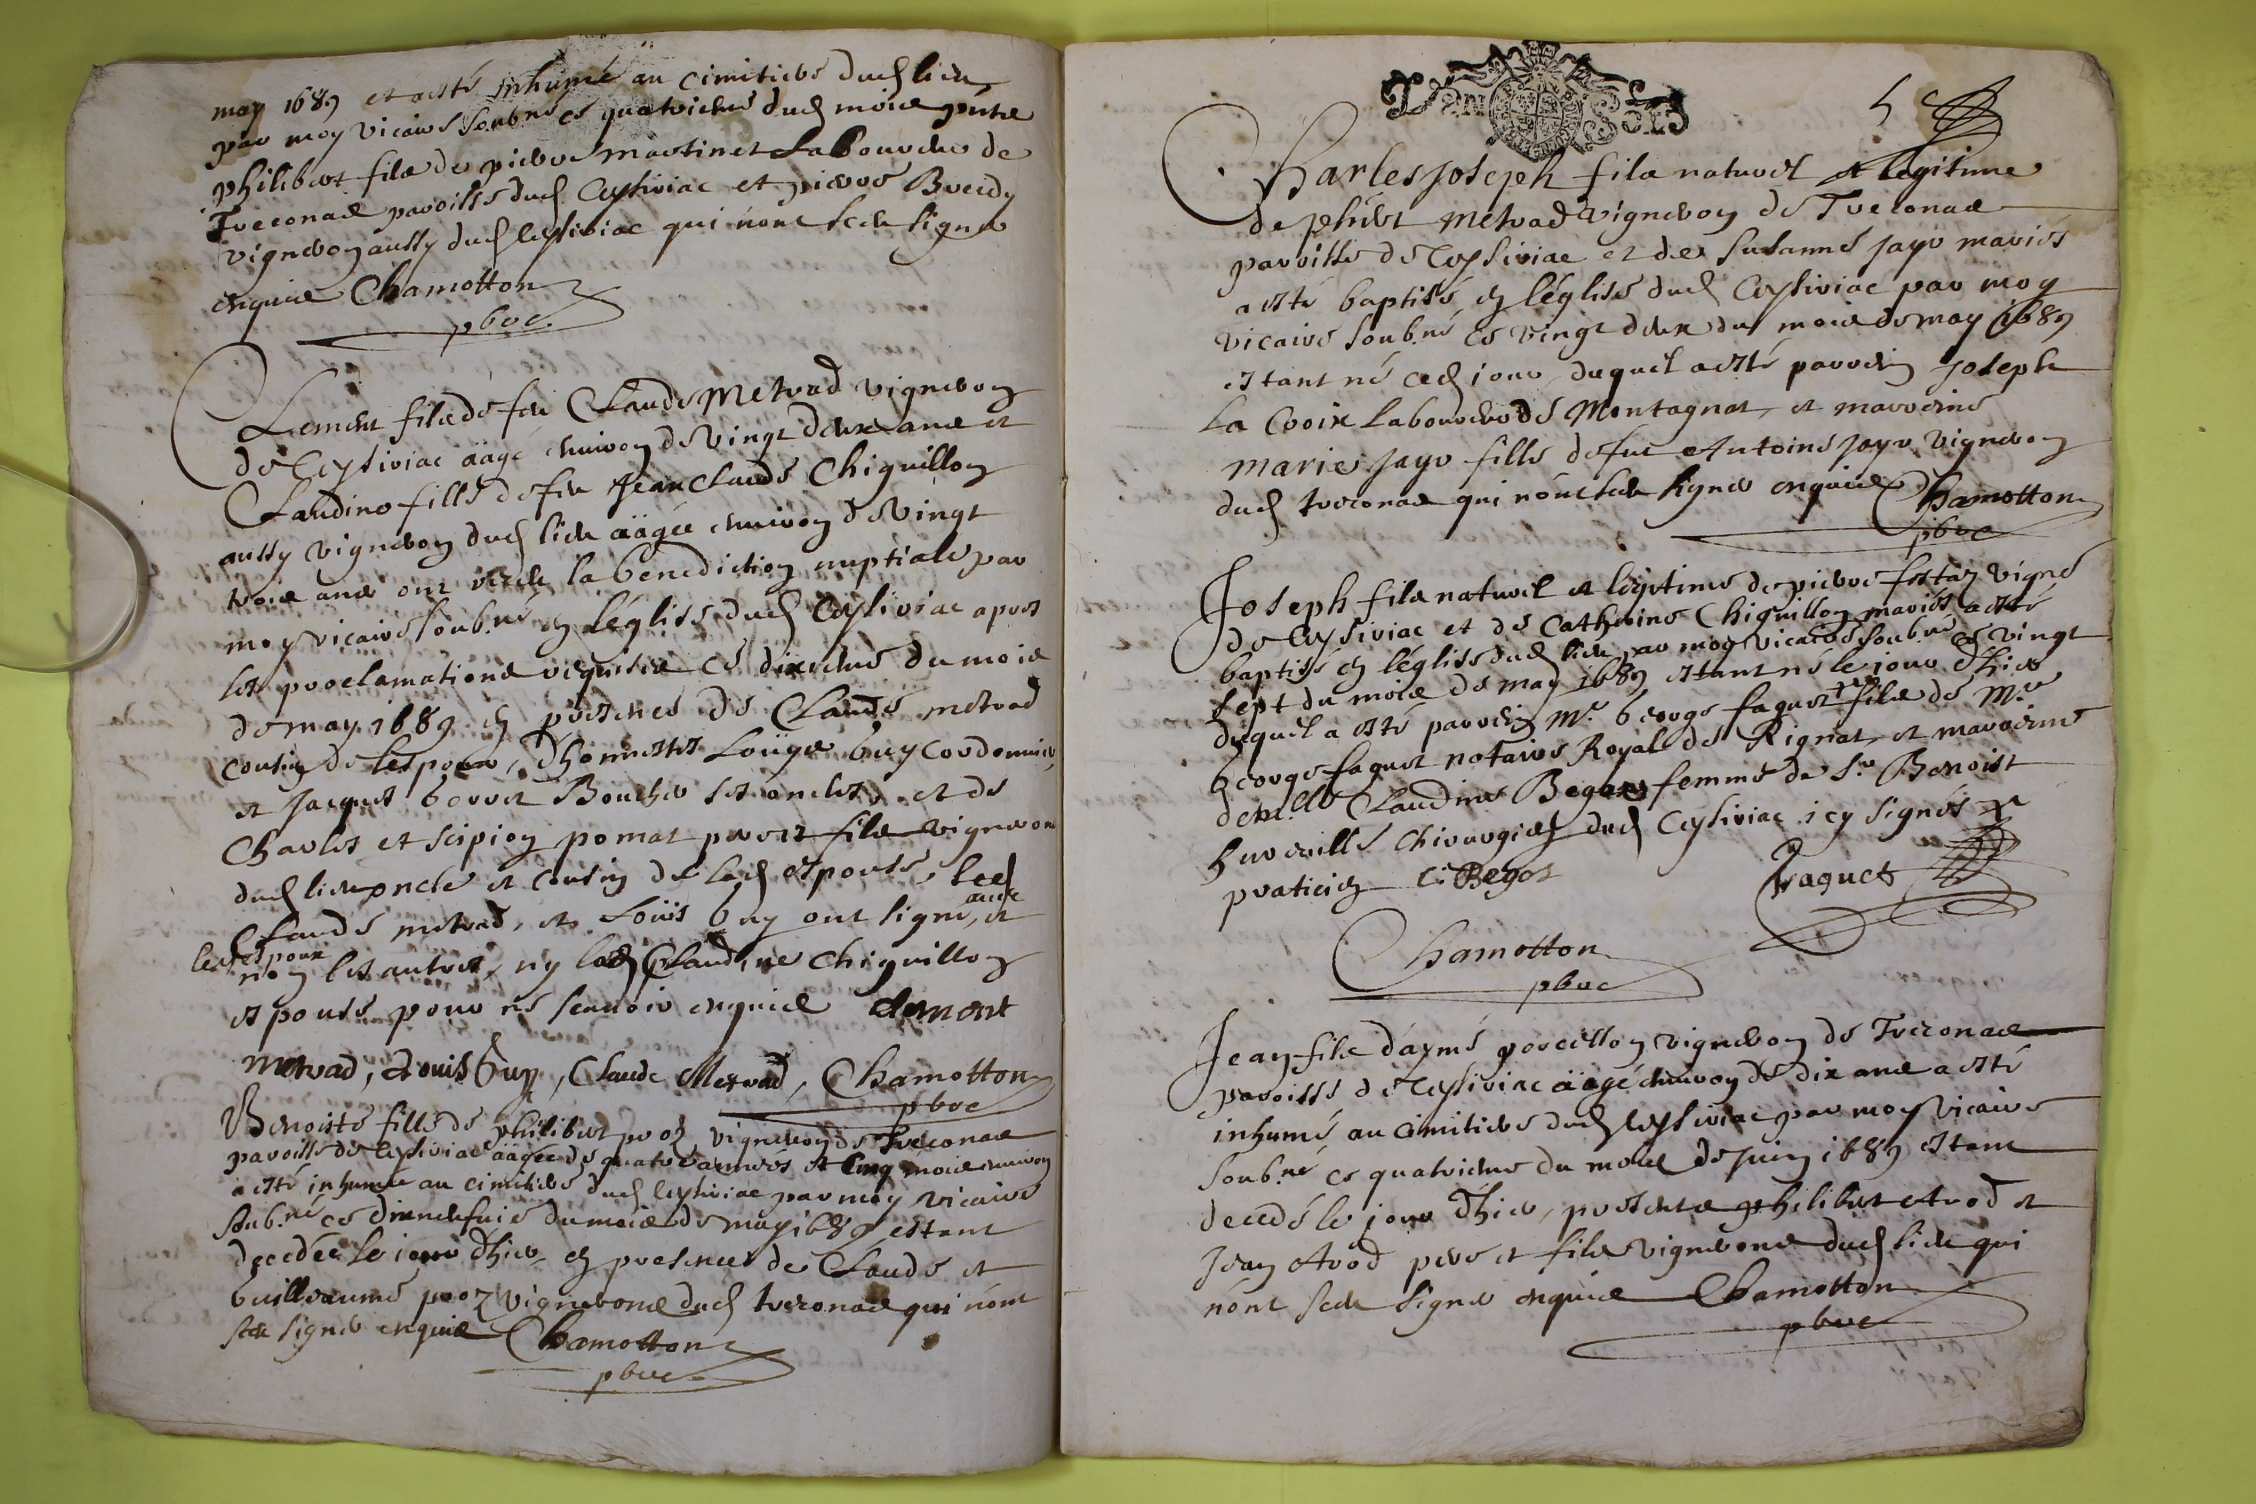 may 1689 et a esté inhumé au cimitiere dud lieu
par moy vicaire soub.né ce quatrieme dud mois pnts
philibert fils de pierre martinet Laboureur de
Treconas paroisse dud Ceysiriac et pierre Bredy
vigneron aussy dud Ceysiriac qui nont sceu signer
enquis Chamotton
pbre
Clement fils de feu Claude Metrad vigneron
de Ceysiriac äagé environ de vingt deux ans et
Claudine fille de feu Jean Claude Chiquillon
aussy vigneron dud lieu äagée environ de vingt
trois ans ont receu la benediction nuptiale par
moy vicaire soub.né en léglise dud Ceysiriac apres
les proclamations requises ce dixieme du mois
de may 1689 en presence de Claude metrad
cousin de lespoux, dhonnestes Loüys Guy Cordonnier,
et Jacques Gorret Boucher ses oncles, et de
Charles et scipion pomat pere et fils vignerons
dud lieu oncle et cousin de lad espouse, led
Claude metrad, et Loüis Guy ont signé, avec et
led espoux
non les autres, ny lad Claudine Chiquillon
espouse pour ne scavoir enquis clement
metrad, Louis Guy, Claude Metrad, Chamotton
pbre
Benoiste fille de philibert proz vigneron de Treconas
paroisse de Ceysiriac äagée de quatre années et cinq mois environ
a esté inhumée au cimitiere dud Ceysiriac par moy vicaire
soub.né ce dixneufvie du mois de may 1689 estant
decedée le jour dhier en presence de Claude et
Guilleaume proz vignerons dud treconas qui nont
sceu signer enquis Chamotton
pbre
5
Charles Joseph fils naturel et legitime
de phibert Metrad vigneron de Treconas
paroisse de Ceysiriac et de susanne Jayr mariés
a esté baptisé en léglise dud Ceysiriac par moy
vicaire soub.né ce vingt deux du mois de may 1689
estant né ced jour duquel a esté parrein Joseph
La Croix Laboureur de Montagnat, et marreine
marie Jayr fille de fut Antoine Jayr vigneron
dud treconas qui nont sceu signer enquis Chamotton
pbre
Joseph fils naturel et legitime de pierre festaz vigne
de Ceysiriac et de Catherine Chiquillon mariés a esté
baptisé en léglise dud lieu par moy vicaire soub.né ce vingt
sept du mois de may 1689 estant né le jour dhier
duquel a esté parrein M.e George faguet fils de M.re
George faguet notaire Royal de Rignat, et marreine
dem.lle Claudine Begot femme de S.r Benoist
hurville Chirurgien dud Ceysiriac icy signés
praticien C: Begot Faguet
Chamotton
pbre
Jean fils daymé porcellon vigneron de Treconas
paroisse de Ceysiriac äagé environ de dix ans a esté
inhumé au cimitiere dud Ceysiriac par moy vicaire
soub.né ce quatrieme du mois de Juin 1689 estant
decedé le jour dhier, presents philibert Arod et
Jean Arod pere et fils vignerons dud lieu qui
nont sceu signer enquis Chamotton
pbre